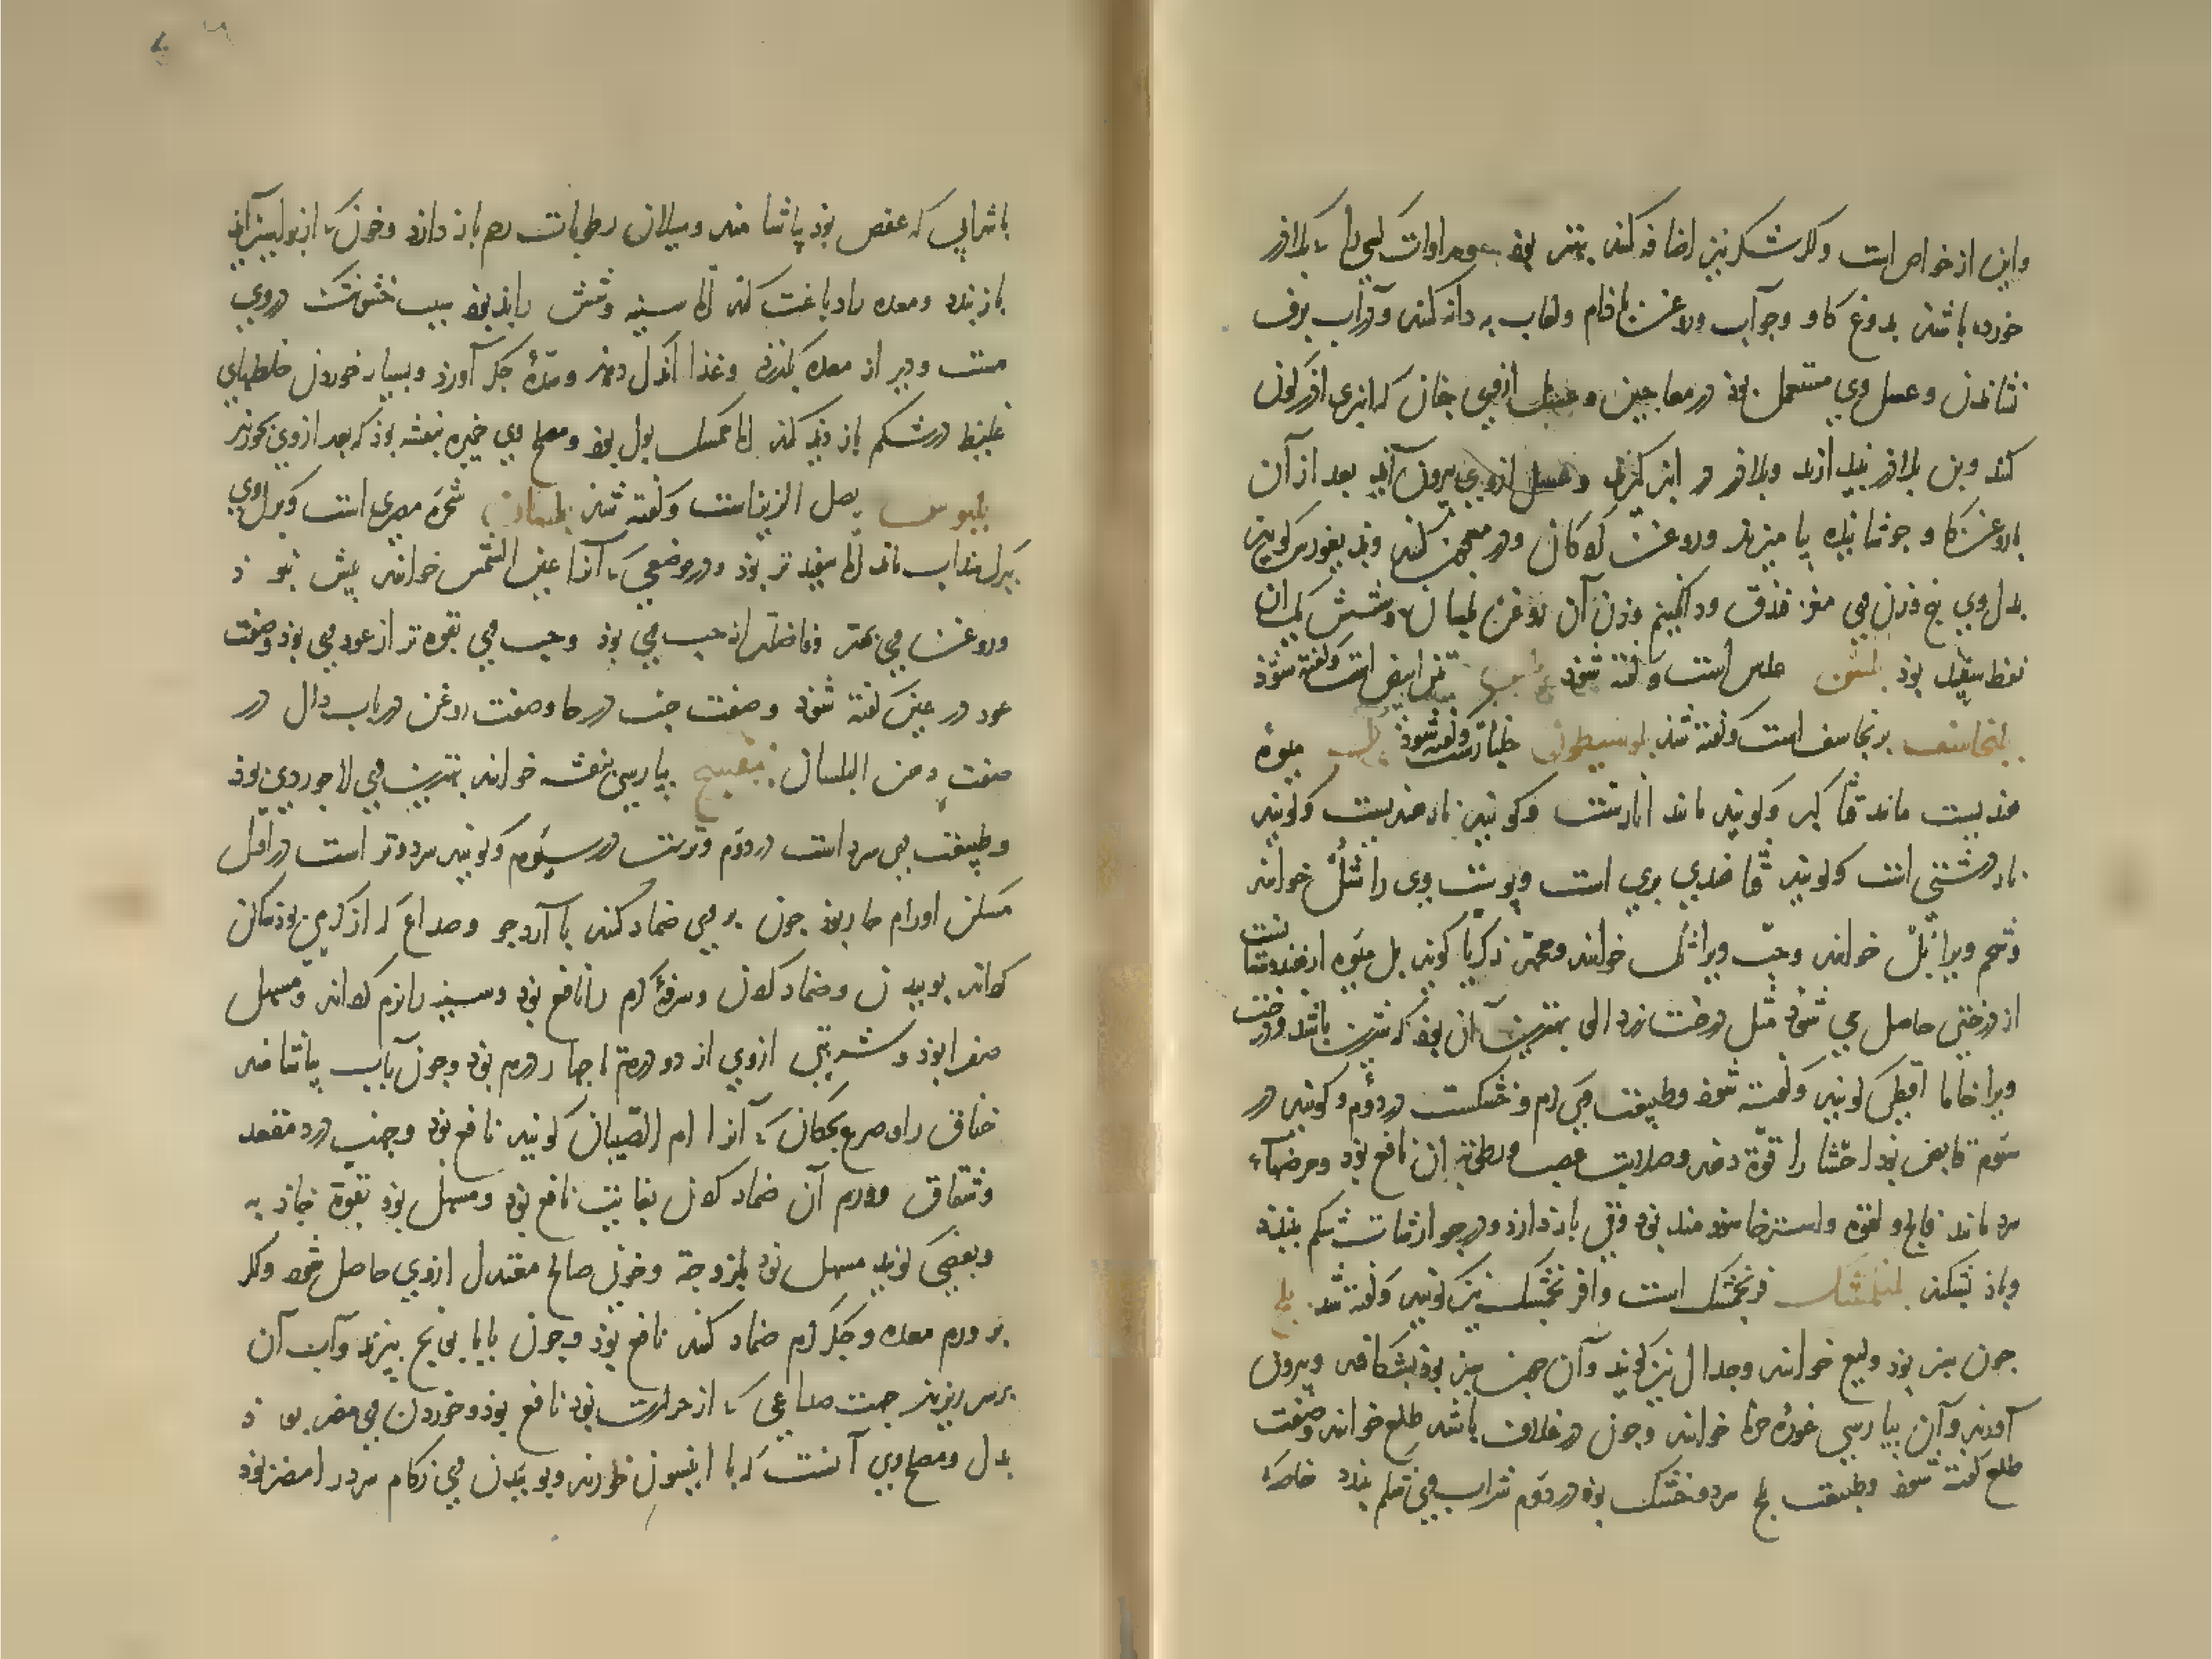 واین از خواص است وکر شکر نیز اضافه کنند بهتر بود ومداوات کسی را که بلاذر
خورده باشد بدوغ کاو وجو آب وروغن بادام ولعاب به دانه کنند ودر آب برف
نشاندن وعسل وی مستعمل بود در معاجین وعسل ازوی جنان کیرند
کنند وبن بلاذر بیندازند وبلاذر در ابنر کیرند وعسل ازوی بیرون آید بعد از آن
باروغن کاو جوشانیده بیامیزند وروغن کردکان ودر معجون کنند
بدل وی پنج وزن وی مغز فندق ودانکینیم وزن آن روغن بلسان وشش یک آن
نفط سفید بود بلسن عدس است وکفته شود ابیض است وکفته شود
بلنجاسف برنجاسف است وکفته شد بلوسیطون جلنارست وکفته شود بل میوهٔ
هندیست مانند قثاء کبر وکویند مانند انارست وکویند نار هندیست وکویند
نار دشتی است وکویند قثا هندی بری است وپوست وی را شل خوانند
وشحم ویرا بل خوانند وحب ویرا خوانند ومحمد زکریا کوید بل میوه از هندوستانست
از درختی حاصل می شود مثل درخت زردالو بهترین آن بود که شیرین باشد ودرخت
ویرا حاما اقطی کویند وکفته شود وطبیعت وی کرم وخشکست در دوم وکویند در
سوم قابض بود احشا را قوة دهد وصلابت عصب ورطوبت آن نافع بود ومرضهاء
سرد مانند فالج ولقوه واسترخا سودمند بود وقی باز دارد ودر جوارشات شکم ببندد
وباد بشکند بلنجشک فرنجمشک است وافرنجمشک نیز کویند وکفته شد بلح
جون سبز بود وبلح خوانند وجدال نیز کویند وآن جون سبز بود بشکافند وبیرون
آورند وآن بپارسی غورهٔ خرما خوانند وجون در غلاف باشد طلع خوانند وصفت
طلع کفته شود وطبیعت بلح سرد وخشک بود در دوم شراب وی شکم ببندد خاصه
باشرابی که عفص بود بیاشامند وسیلان رطوبات رحم باز دارد وخون که از بواسیر آید
باز بندد ومعده را دباغت کند اما سینه وشش را بد بود بسبب خشونتی که در وی
هست ودیر از معده بکذرد وغذا اندک دهد وسدهٔ جکر آورد وبسیار خوردن خلطهای
غلیظ در شکم باز دید کند اما ممسک بول بود ومصلح وی خمیره بنفشه بود که بعد ازوی بخورند
بلبوس بصل الزیز است وکفته شد بلسان شجرة مصری است وبرک وی
ببرک سذاب ماند اما سفید تر بود ودر موضعی که آنرا عین الشمس خوانند بیش نبود
وروغن وی بهتر وفاضلتر از حب وی بود وحب وی بقوه تر از عود وی بود وصفت
عود در عین کفته شود وصفت حب در حا وصفت روغن در باب دال در
صفت دهن البلسان بنفسج بپارسی بنفشه خوانند بهترین وی لاجوردی بود
وطبیعت وی سرد است در دوم وترست در سیوم وکویند سرد وتر است در اول
مسکن اورام حار بود جون بر وی ضماد کنند با آرد جو وصداع که از کرمی بود ساکن
کرداند بوییدن وضماد کردن وسرفهٔ کرم را نافع بود وسینه را نرم کرداند ومسهل
صفرا بود وشربتی ازوی از دو درم تا جهار درم بود وجون بآب بیاشامند
خناق را وصرع بجکان که آنرا ام الصبیان کویند نافع بود وجهت درد مقعد
وشقاق وورم آن ضماد کردن بغایت نافع بود ومسهل بود بقوة جاذبه
وبعضی کویند مسهل بود بلزوجة وخونی صالح معتدل ازوی حاصل شود وکر
بر ورم معده وجکر کرم ضماد کنند نافع بود وجون با بابونج بپزند وآب آن
برسر ریزند جهت صداعی که از حرارت بود نافع بود وخوردن وی مضر بود
بدل ومصلح وی آنست که با انیسون خورند وبوییدن وی زکام سرد را مضر بود